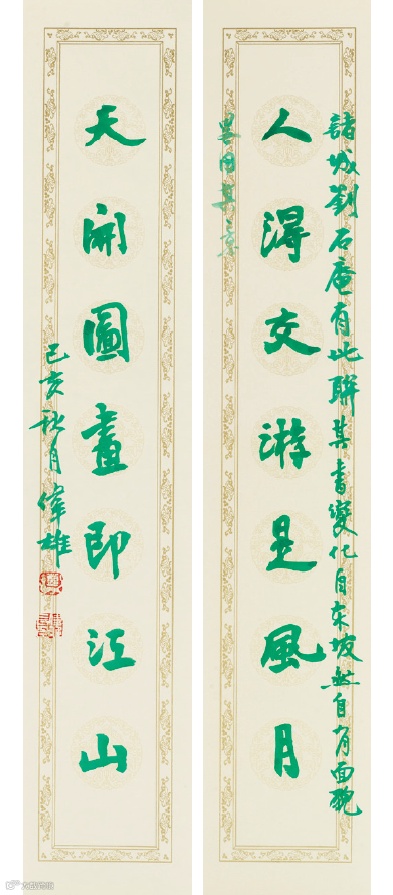 諸城劉石庵有此聯其書變化自東坡然自有面貌
人淂交游是風月
天開圖畫即江山
己亥秋月偉雄